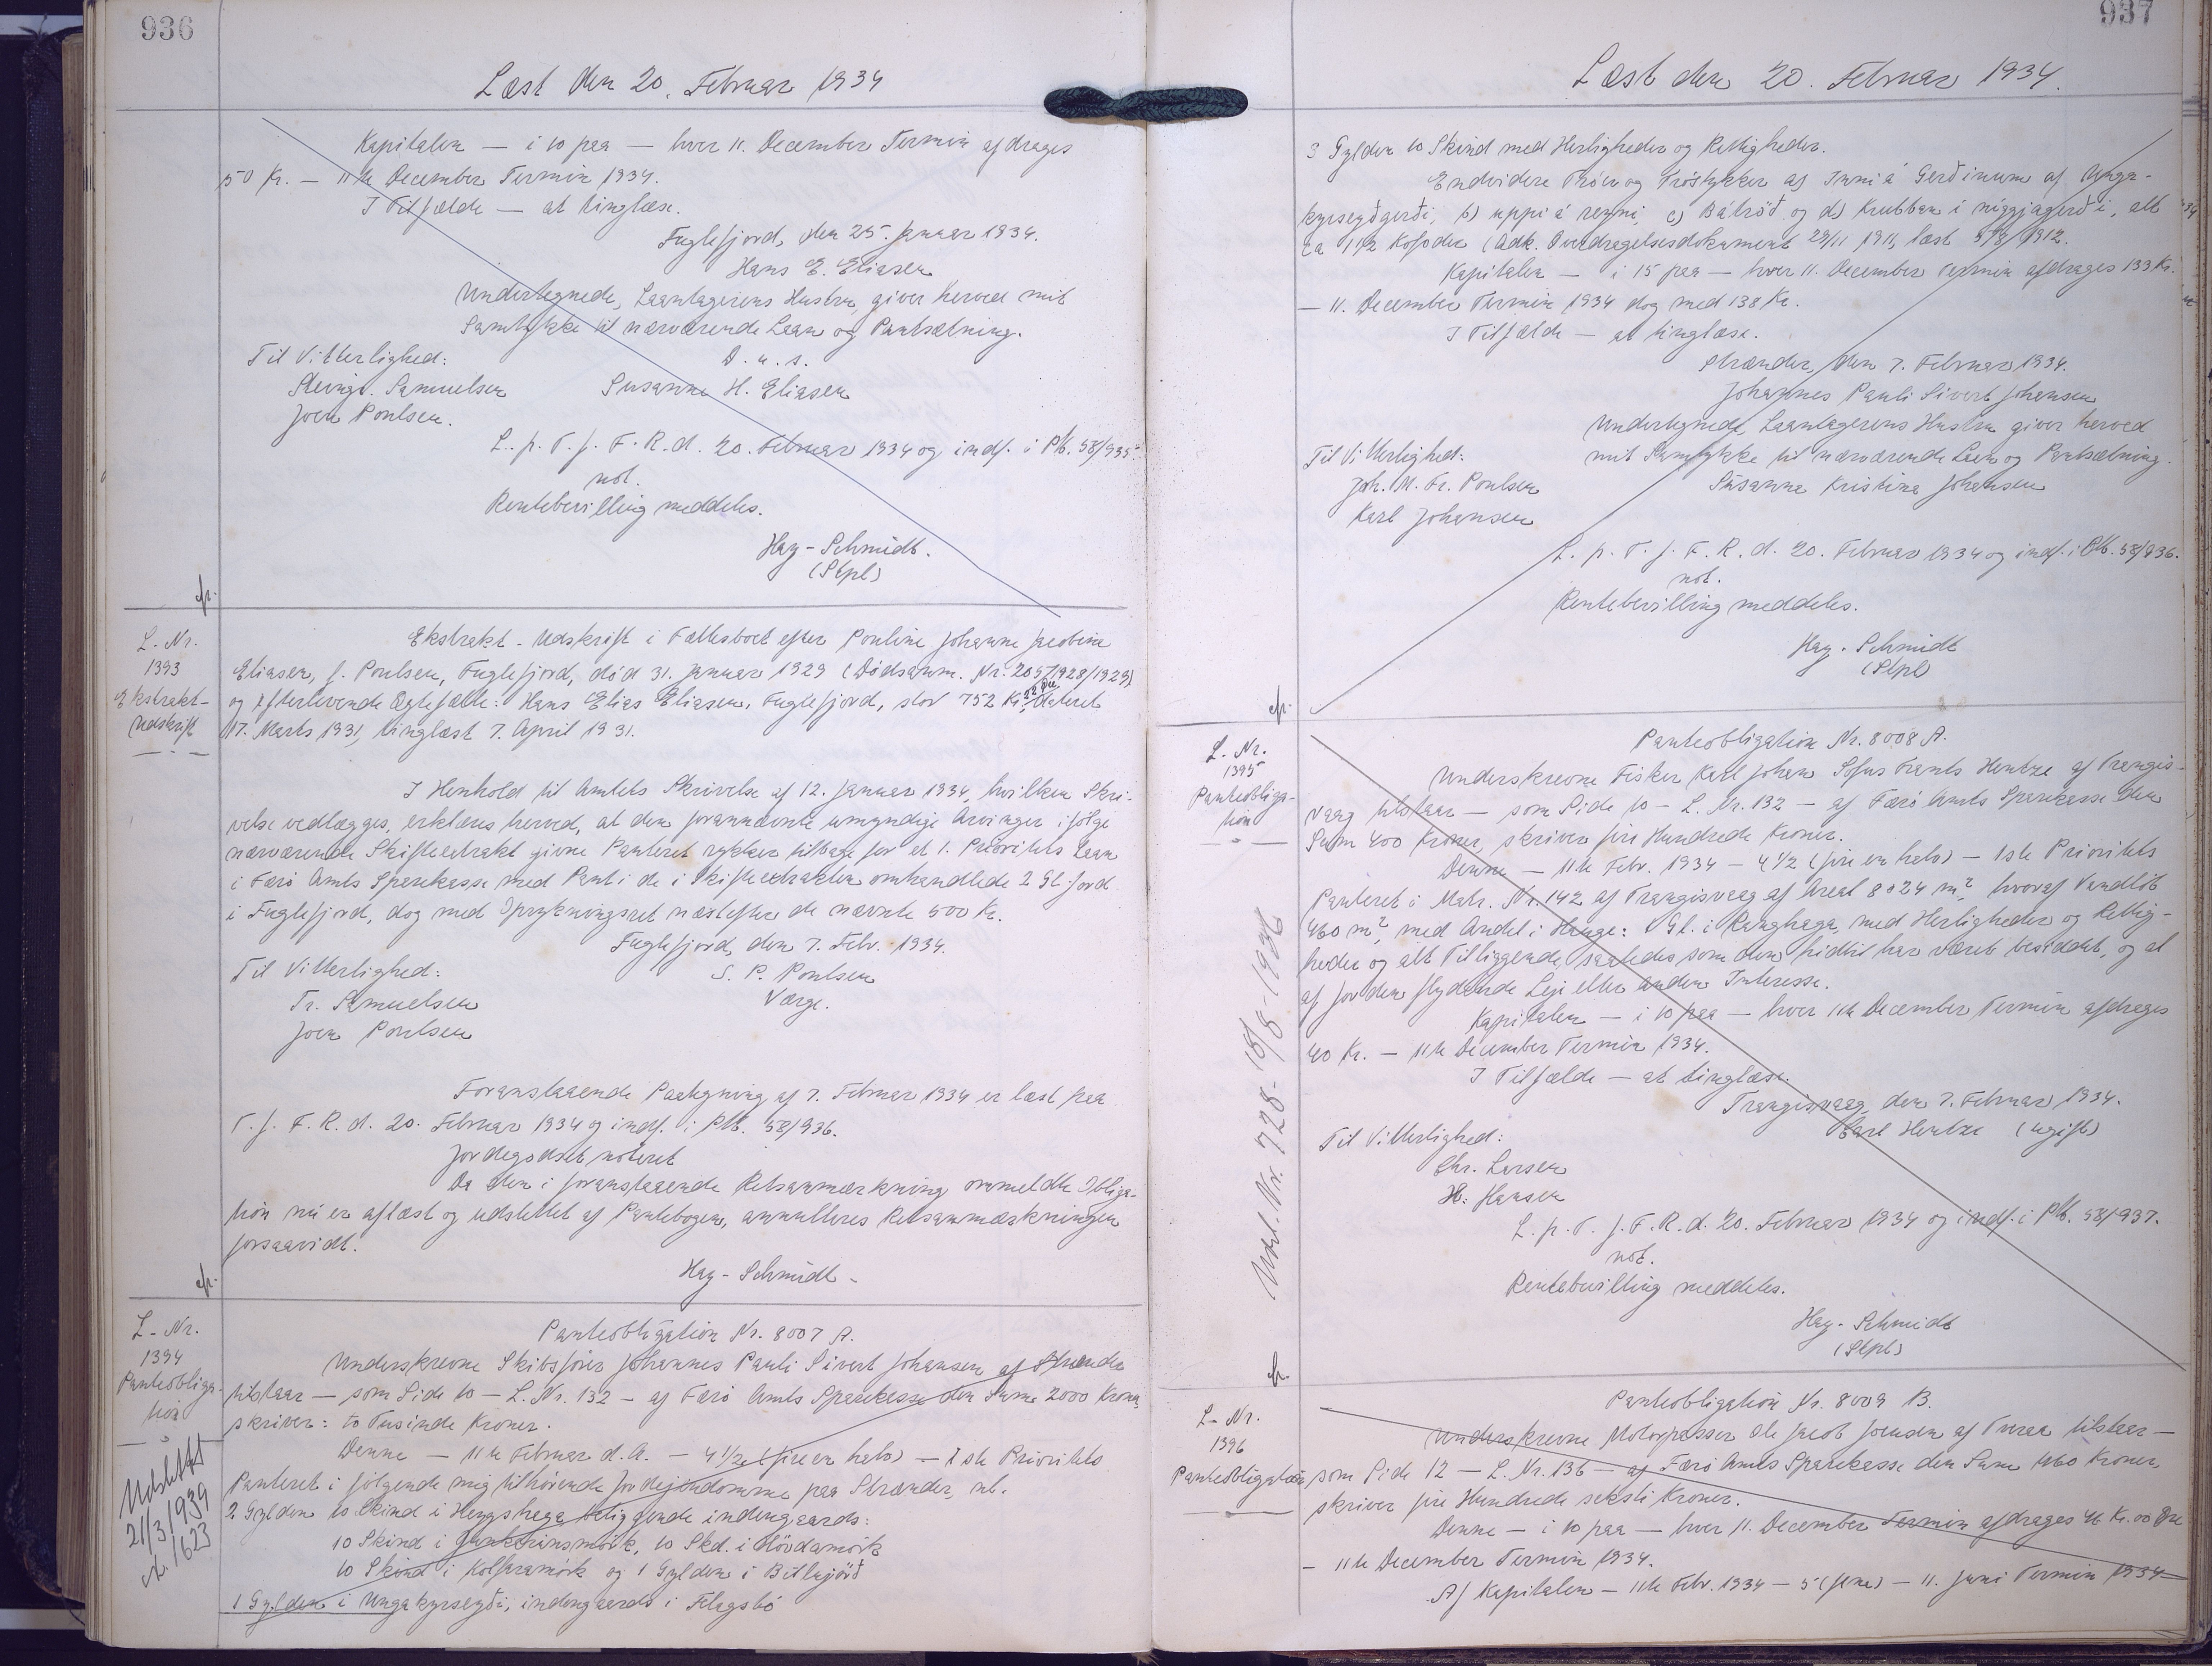 936
Læst den 20. Februar 1934
Kapitalen — i 10 paa — hver 11. December Termin afdrages
50 Kr. — 11te December Termin 1934.
I Tilfælde — at tinglæse.
Fuglefjord, den 25. Januar 1934.
Hans E. Eliasen
Undertegnede, Laantagerens Hustru, giver herved mit
Samtykke til nærværende Laan og Pantsætning.
Til Vitterlighed:
D. u. s.
Susanne H. Eliasen
Samuelsen
Joen Poulsen.
L. p. T. f. F. R. d. 20. Februar 1934 og indf. i Pb. 58/935.
not.
Rentebevilling meddeles.
Hay-Schmidt.
(Stpl)
cfr.
L. Nr.
1393
Ekstrakt-
Udskrift
Ekstrakt-Udskrift i Fællesboet efter Pouline Johanne Jacobine
Eliasen, f. Poulsen, Fuglefjord, død 31. Januar 1929 (Dødsanm. Nr. 205/1928/1929)
og efterlevende Ægtefælle: Hans Elias Eliasen, Fuglefjord, stor 752 Kr. 22 Øre, dateret
17. Marts 1931, tinglæst 7. April 1931.
I Henhold til Amtets Skrivelse af 12. Januar 1934, hvilken Skri-
velse vedlægges, erklæres herved, at den forannævnte umyndige Arvinger ifølge
nærværende Skifteextrakt givne Panteret rykker tilbage for et 1. Prioritets Laan
i Færø Amts Sparekasse med Pant i de i Skifteextrakten omhandlede 2 Gl. Jord
i Fuglefjord, dog med Oprykningsret næstefter de nævnte 500 Kr.
Fuglefjord, den 7. Febr. 1934.
Til Vitterlighed:
S. P. Poulsen
Værge.
Tr. Samuelsen
Joen Poulsen
Foranstaaende Paategning af 7. Februar 1934 er læst paa
T. f. F. R. d. 20. Februar 1934 og indf. i Pb. 58/936.
Jordegodset noteret
Da den i foranstaaende Retsanmærkning ommeldte Obliga-
tion nu er aflæst og udslettet af Pantebogen, annulleres Retsanmærkningen
forsaavidt.
Hay-Schmidt-
cfr.
L-Nr.
1394
Panteobliga-
tion
Udslettet
21/3/1939
1623
Panteobligation Nr. 8007 A.
Underskrevne Skibsfører Johannes Pauli Sivert Johansen af Strænder
tilstaar — som Side 10 — L. Nr. 132 — af Færø Amts Sparekasse den Sum 2000 Kroner,
skriver: to Tusinde Kroner.
Denne — 11te Februar d. A. — 4½ (fire en halv) — 1ste Prioritets
Panteret i følgende mig tilhørende Jordejendomme paa Strænder, nl.
2 Gylden 10 Skind i Heygshaga beliggende indengaards:
10 Skind i 10 Skd. i Hövdamörk
10 Skind i Kolfaramörk og 1 Gylden i
1 Gylden i Ungakyrseyði, indengaards i Flagsbö
937
Læst den 20. Februar 1934.
3 Gylden 10 Skind med Herligheder og Rettigheder.
Endvidere Trøer og Trøstykker a) Inni á Gerðinum af Unga-
kyrseyðgerði, b) uppi á renni, c) Bátröð og d) Krubban i niggjagerði, alt
ca 11½ Kofoder (Adk. Overdragelsesdokument 29/11 1911, læst 5/8/1912.
Kapitalen — i 15 paa — hver 11. December Termin afdrages 133 Kr.
— 11. December Termin 1934 dog med 138 Kr.
I Tilfælde — at tinglæse.
Strænder, den 7. Februar 1934.
Johannes Pauli Sivert Johansen
Undertegnede, Laantagerens Hustru giver herved
Til Vitterlighed:
mit Samtykke til nærværende Laan og Pantsætning.
Joh. M. Fr. Poulsen
Susanna Kristina Johansen
Karl Johansen
L. p. T. f. F. R. d. 20. Februar 1934 og indf. i Pb. 58/936.
not.
Rentebevilling meddeles.
Hay-Schmidt
(Stpl)
cfr.
L. Nr.
1395
Panteobliga-
tion
Udsl. Nr. 728 - 18/8-1936
Panteobligation Nr. 8008 A.
Underskrevne Fisker Karl Johan Sofus Frants Hentze af Trangis-
vaag tilstaar — som Side 10 — L. Nr. 132 — af Færø Amts Sparekasse den
Sum 400 Kroner, skriver fire Hundrede Kroner.
Denne — 11te Febr. 1934 — 4½ (fire en halv) — 1ste Prioritets
Panteret i Matr. Nr. 142 af Trangisvaag af Areal 8024 m², hvoraf Vandløb
460 m², med Andel i Hauge: 1 Gl. i Ranghaga, med Herligheder og Rettig-
heder og alt Tilliggende, saaledes som den hidtil har været besiddet, og al
af Jorden flydende Leje eller anden Interesse.
Kapitalen — i 10 paa — hver 11te December Termin afdrages
40 Kr. — 11te December Termin 1934.
I Tilfælde — at tinglæse.
Trangisvaag, den 7. Februar 1934.
Karl Hentze (ugift)
Til Vitterlighed:
Chr. Larsen
H. Hansen
L. p. T. f. F. R. d. 20. Februar 1934 og indf. i Pb. 58/937.
not.
Rentebevilling meddeles.
Hay-Schmidt
(Stpl)
L-Nr.
1396
Panteobligation
Panteobligation Nr. 8009 B.
Underskrevne Motorpasser Ole Jacob Joensen af Tveraa tilstaar —
som Side 12 — L. Nr. 136 — af Færø Amts Sparekasse den Sum 460 Kroner,
skriver fire Hundrede seksti Kroner.
Denne — i 10 paa — hver 11. December Termin afdrages 46 Kr. 00 Øre
— 11te December Termin 1934.
Af Kapitalen — 11te Febr. 1934 — 5 (fem) — 11. Juni Termin 1934